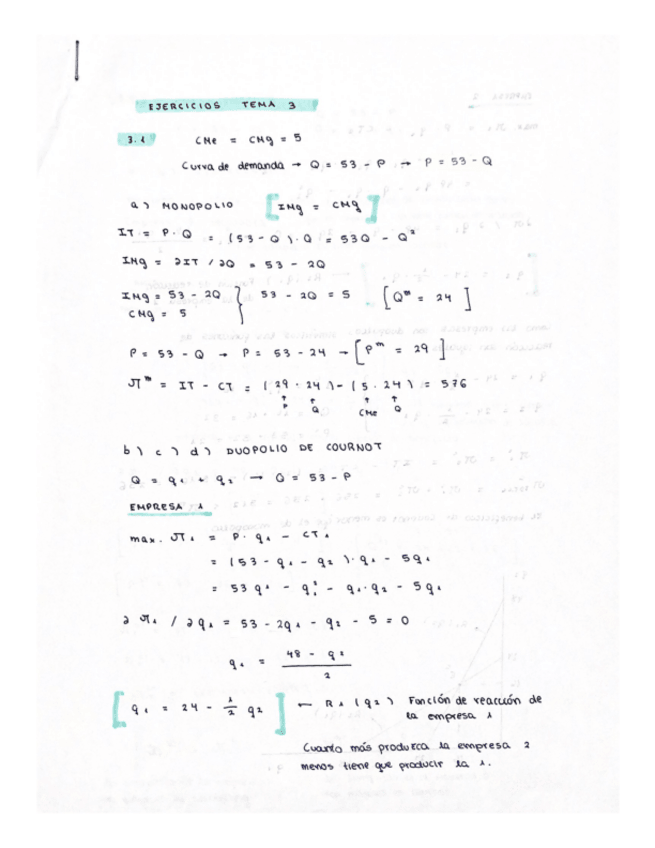 EJERCICIOS TEMA 3
3.1 CMe = CMg = 5
Curva de demanda → Q = 53 - P → P = 53 - Q
a) MONOPOLIO [IMg = CMg]
IT = P · Q = (53 - Q) · Q = 53Q - Q²
IMg = ∂IT / ∂Q = 53 - 2Q
IMg = 53 - 2Q } 53 - 2Q = 5 [Qᵐ = 24]
CMg = 5
P = 53 - Q → P = 53 - 24 → [Pᵐ = 29]
πᵐ = IT - CT = (29 · 24) - (5 · 24) = 576
↑ ↑ ↑ ↑
P Q CMe Q
b) c) d) DUOPOLIO DE COURNOT
Q = q₁ + q₂ → Q = 53 - P
EMPRESA 1
max. π₁ = P · q₁ - CT₁
= (53 - q₁ - q₂) · q₁ - 5q₁
= 53q₁ - q₁² - q₁·q₂ - 5q₁
∂π₁ / ∂q₁ = 53 - 2q₁ - q₂ - 5 = 0
q₁ = (48 - q₂) / 2
[q₁ = 24 - 1/2 q₂] ← R₁(q₂) Función de reacción de
la empresa 1
Cuanto más produzca la empresa 2
menos tiene que producir la 1.